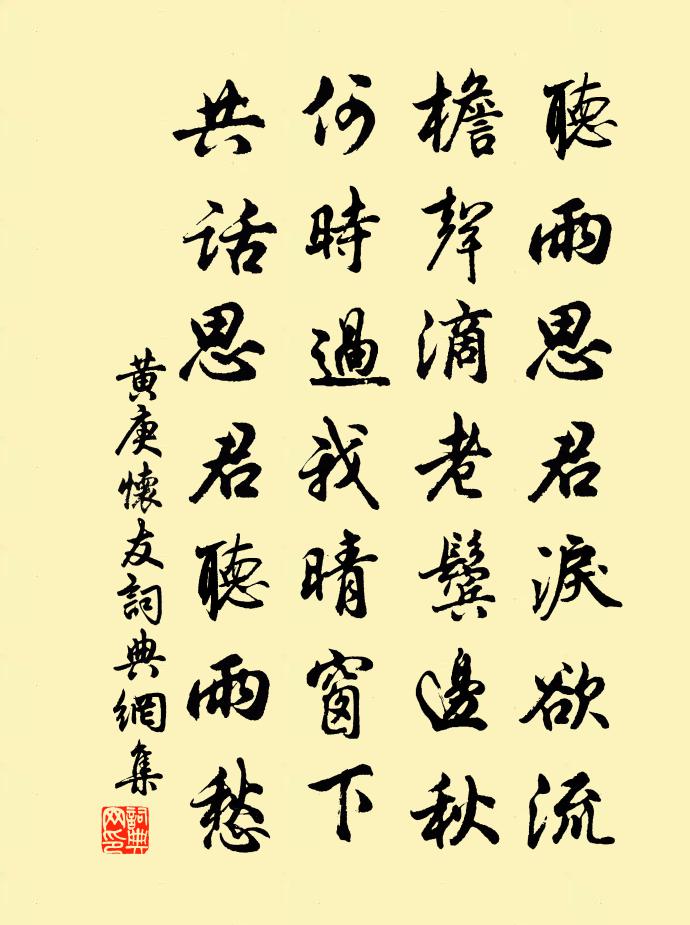 聽雨思君淚欲流
檐聲滴老鬢邊秋
何時過我晴窗下
共話思君聽雨愁
黃庚懷友詞典網集
詞典网印